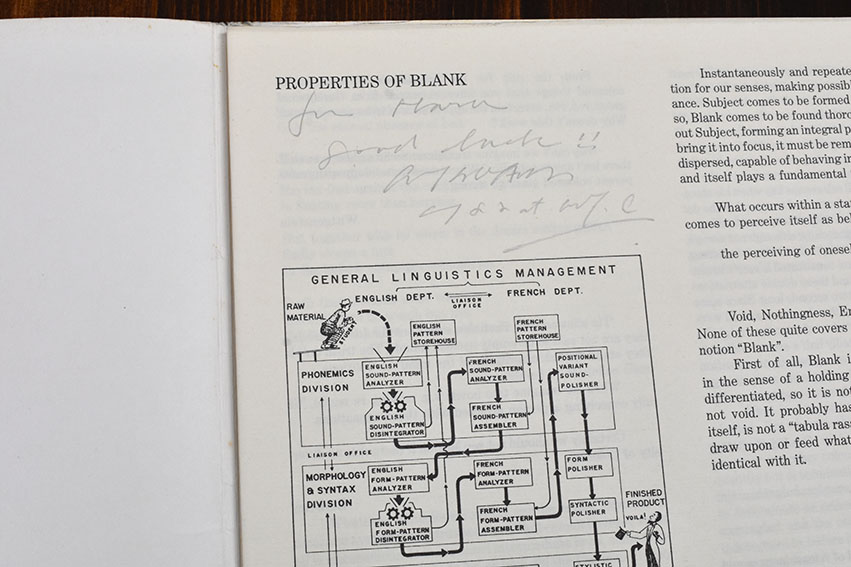 PROPERTIES OF BLANK
good luck !!
GENERAL LINGUISTICS MANAGEMENT
ENGLISH DEPT.
LIAISON
OFFICE
FRENCH DEPT.
RAW
MATERIAL
STUDENT
ENGLISH
PATTERN
STOREHOUSE
FRENCH
PATTERN
STOREHOUSE
PHONEMICS
DIVISION
ENGLISH
SOUND-PATTERN
ANALYZER
FRENCH
SOUND-PATTERN
ANALYZER
POSITIONAL
VARIANT
SOUND-
POLISHER
ENGLISH
SOUND-PATTERN
DISINTEGRATOR
FRENCH
SOUND-PATTERN
ASSEMBLER
LIAISON OFFICE
MORPHOLOGY
& SYNTAX
DIVISION
ENGLISH
FORM-PATTERN
ANALYZER
FRENCH
FORM-PATTERN
ANALYZER
FORM
POLISHER
ENGLISH
FORM-PATTERN
DISINTEGRATOR
FRENCH
FORM-PATTERN
ASSEMBLER
SYNTACTIC
POLISHER
FINISHED
PRODUCT
VOILA!
STYLISTIC
Instantaneously and repeate
tion for our senses, making possibl
ance. Subject comes to be formed
so, Blank comes to be found thoro
out Subject, forming an integral p
bring it into focus, it must be rem
dispersed, capable of behaving in
and itself plays a fundamental
What occurs within a sta
comes to perceive itself as be
the perceiving of onesel
Void, Nothingness, Em
None of these quite covers
notion “Blank”.
First of all, Blank i
in the sense of a holding
differentiated, so it is no
not void. It probably has
itself, is not a “tabula ras
draw upon or feed what
identical with it.